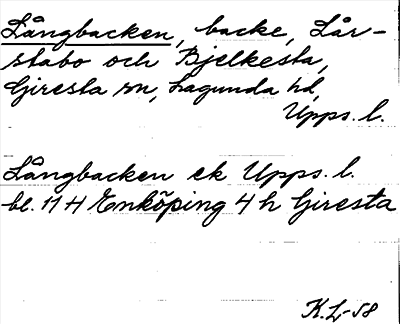 Långbacken, backe, Lår-
stabo och Bjelkesta,
Giresta sn, Lagunda hd,
Upps. l.
Långbacken ek Upps. l.
bl. 11 H Enköping 4 h Giresta
K.L-58